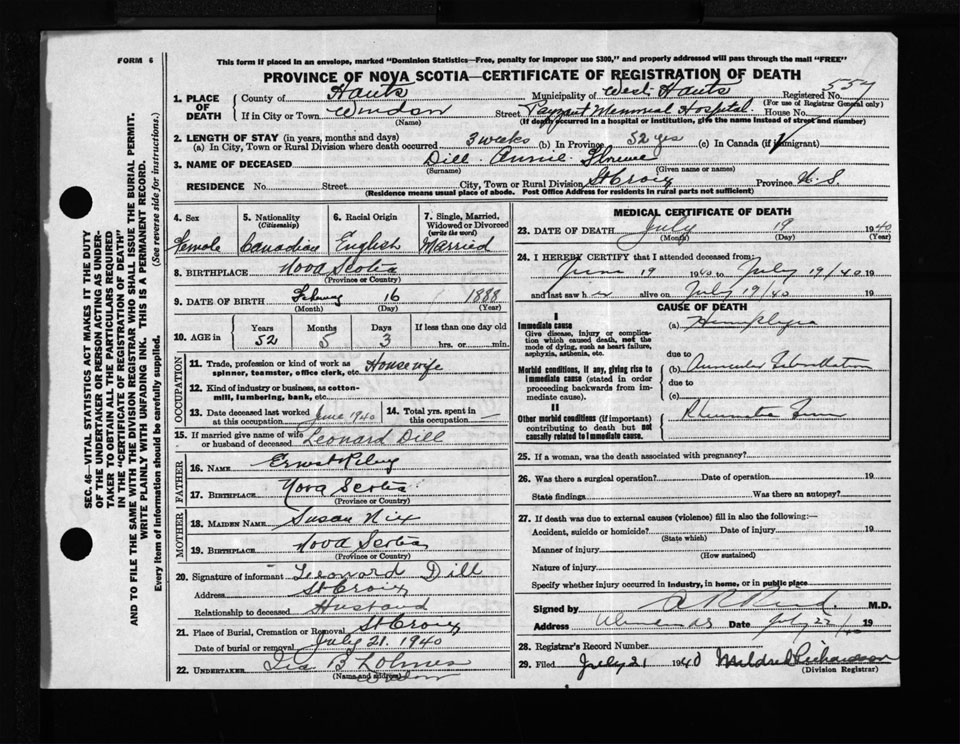 FORM 6
This form if placed in an envelope, marked "Dominion Statistics—Free, penalty for improper use $300," and properly addressed will pass through the mail "FREE"
PROVINCE OF NOVA SCOTIA—CERTIFICATE OF REGISTRATION OF DEATH
1. PLACE OF DEATH
County of Hants Municipality of West Hants Registered No. 557
(For use of Registrar General only)
If in City or Town Windsor Street Payzant Memorial Hospital House No.
(Name) (If death occurred in a hospital or institution, give the name instead of street and number)
2. LENGTH OF STAY (in years, months and days)
(a) In City, Town or Rural Division where death occurred 3 weeks (b) In Province 52 yrs (c) In Canada (if immigrant)
3. NAME OF DECEASED Dill Annie Florence
(Surname) (Given name or names)
RESIDENCE No. Street City, Town or Rural Division St Croix Province N.S.
(Residence means usual place of abode. Post Office Address for residents in rural parts not sufficient)
SEC. 46—VITAL STATISTICS ACT MAKES IT THE DUTY
OF THE UNDERTAKER OR PERSON ACTING AS UNDER-
TAKER TO OBTAIN ALL THE PARTICULARS REQUIRED
IN THE "CERTIFICATE OF REGISTRATION OF DEATH"
AND TO FILE THE SAME WITH THE DIVISION REGISTRAR WHO SHALL ISSUE THE BURIAL PERMIT.
WRITE PLAINLY WITH UNFADING INK. THIS IS A PERMANENT RECORD.
Every item of Information should be carefully supplied. (See reverse side for instructions.)
4. Sex 5. Nationality 6. Racial Origin 7. Single, Married, Widowed or Divorced
(Citizenship) (write the word)
Female Canadian English Married
8. BIRTHPLACE Nova Scotia
(Province or Country)
9. DATE OF BIRTH 16 1888
(Month) (Day) (Year)
10. AGE in Years Months Days If less than one day old
52 5 3 hrs. or min.
OCCUPATION
11. Trade, profession or kind of work as spinner, teamster, office clerk, etc. Housewife
12. Kind of industry or business, as cotton-mill, lumbering, bank, etc.
13. Date deceased last worked at this occupation June 1940 14. Total yrs. spent in this occupation
15. If married give name of wife or husband of deceased Leonard Dill
FATHER
16. NAME Ernest Riley
17. BIRTHPLACE Nova Scotia
(Province or Country)
MOTHER
18. MAIDEN NAME Susan Nix
19. BIRTHPLACE Nova Scotia
(Province or Country)
20. Signature of informant Leonard Dill
Address St Croix
Relationship to deceased Husband
21. Place of Burial, Cremation or Removal St Croix
Date of burial or removal July 21. 1940
22. UNDERTAKER Ira B Lohnes
(Name and address) Windsor
MEDICAL CERTIFICATE OF DEATH
23. DATE OF DEATH July 19 1940
(Month) (Day) (Year)
24. I HEREBY CERTIFY that I attended deceased from:
June 19 1940 to July 19/40 19
and last saw h alive on July 19/40 19
CAUSE OF DEATH
I
Immediate cause
Give disease, injury or complica-
tion which caused death, not the
mode of dying, such as heart failure,
asphyxia, asthenia, etc.
(a) Hemiplegia
due to
Morbid conditions, if any, giving rise to
immediate cause (stated in order
proceeding backwards from im-
mediate cause).
(b) Auricular Fibrillation
due to
(c)
II
Other morbid conditions (if important)
contributing to death but not
causally related to immediate cause.
Rheumatic Fever
25. If a woman, was the death associated with pregnancy?
26. Was there a surgical operation? Date of operation 19
State findings Was there an autopsy?
27. If death was due to external causes (violence) fill in also the following:—
Accident, suicide or homicide? Date of injury 19
(State which)
Manner of injury
(How sustained)
Nature of injury
Specify whether injury occurred in industry, in home, or in public place
Signed by M.D.
Address Date July 22/40 19
28. Registrar's Record Number
29. Filed July 21 1940 Mildred Richardson
(Division Registrar)